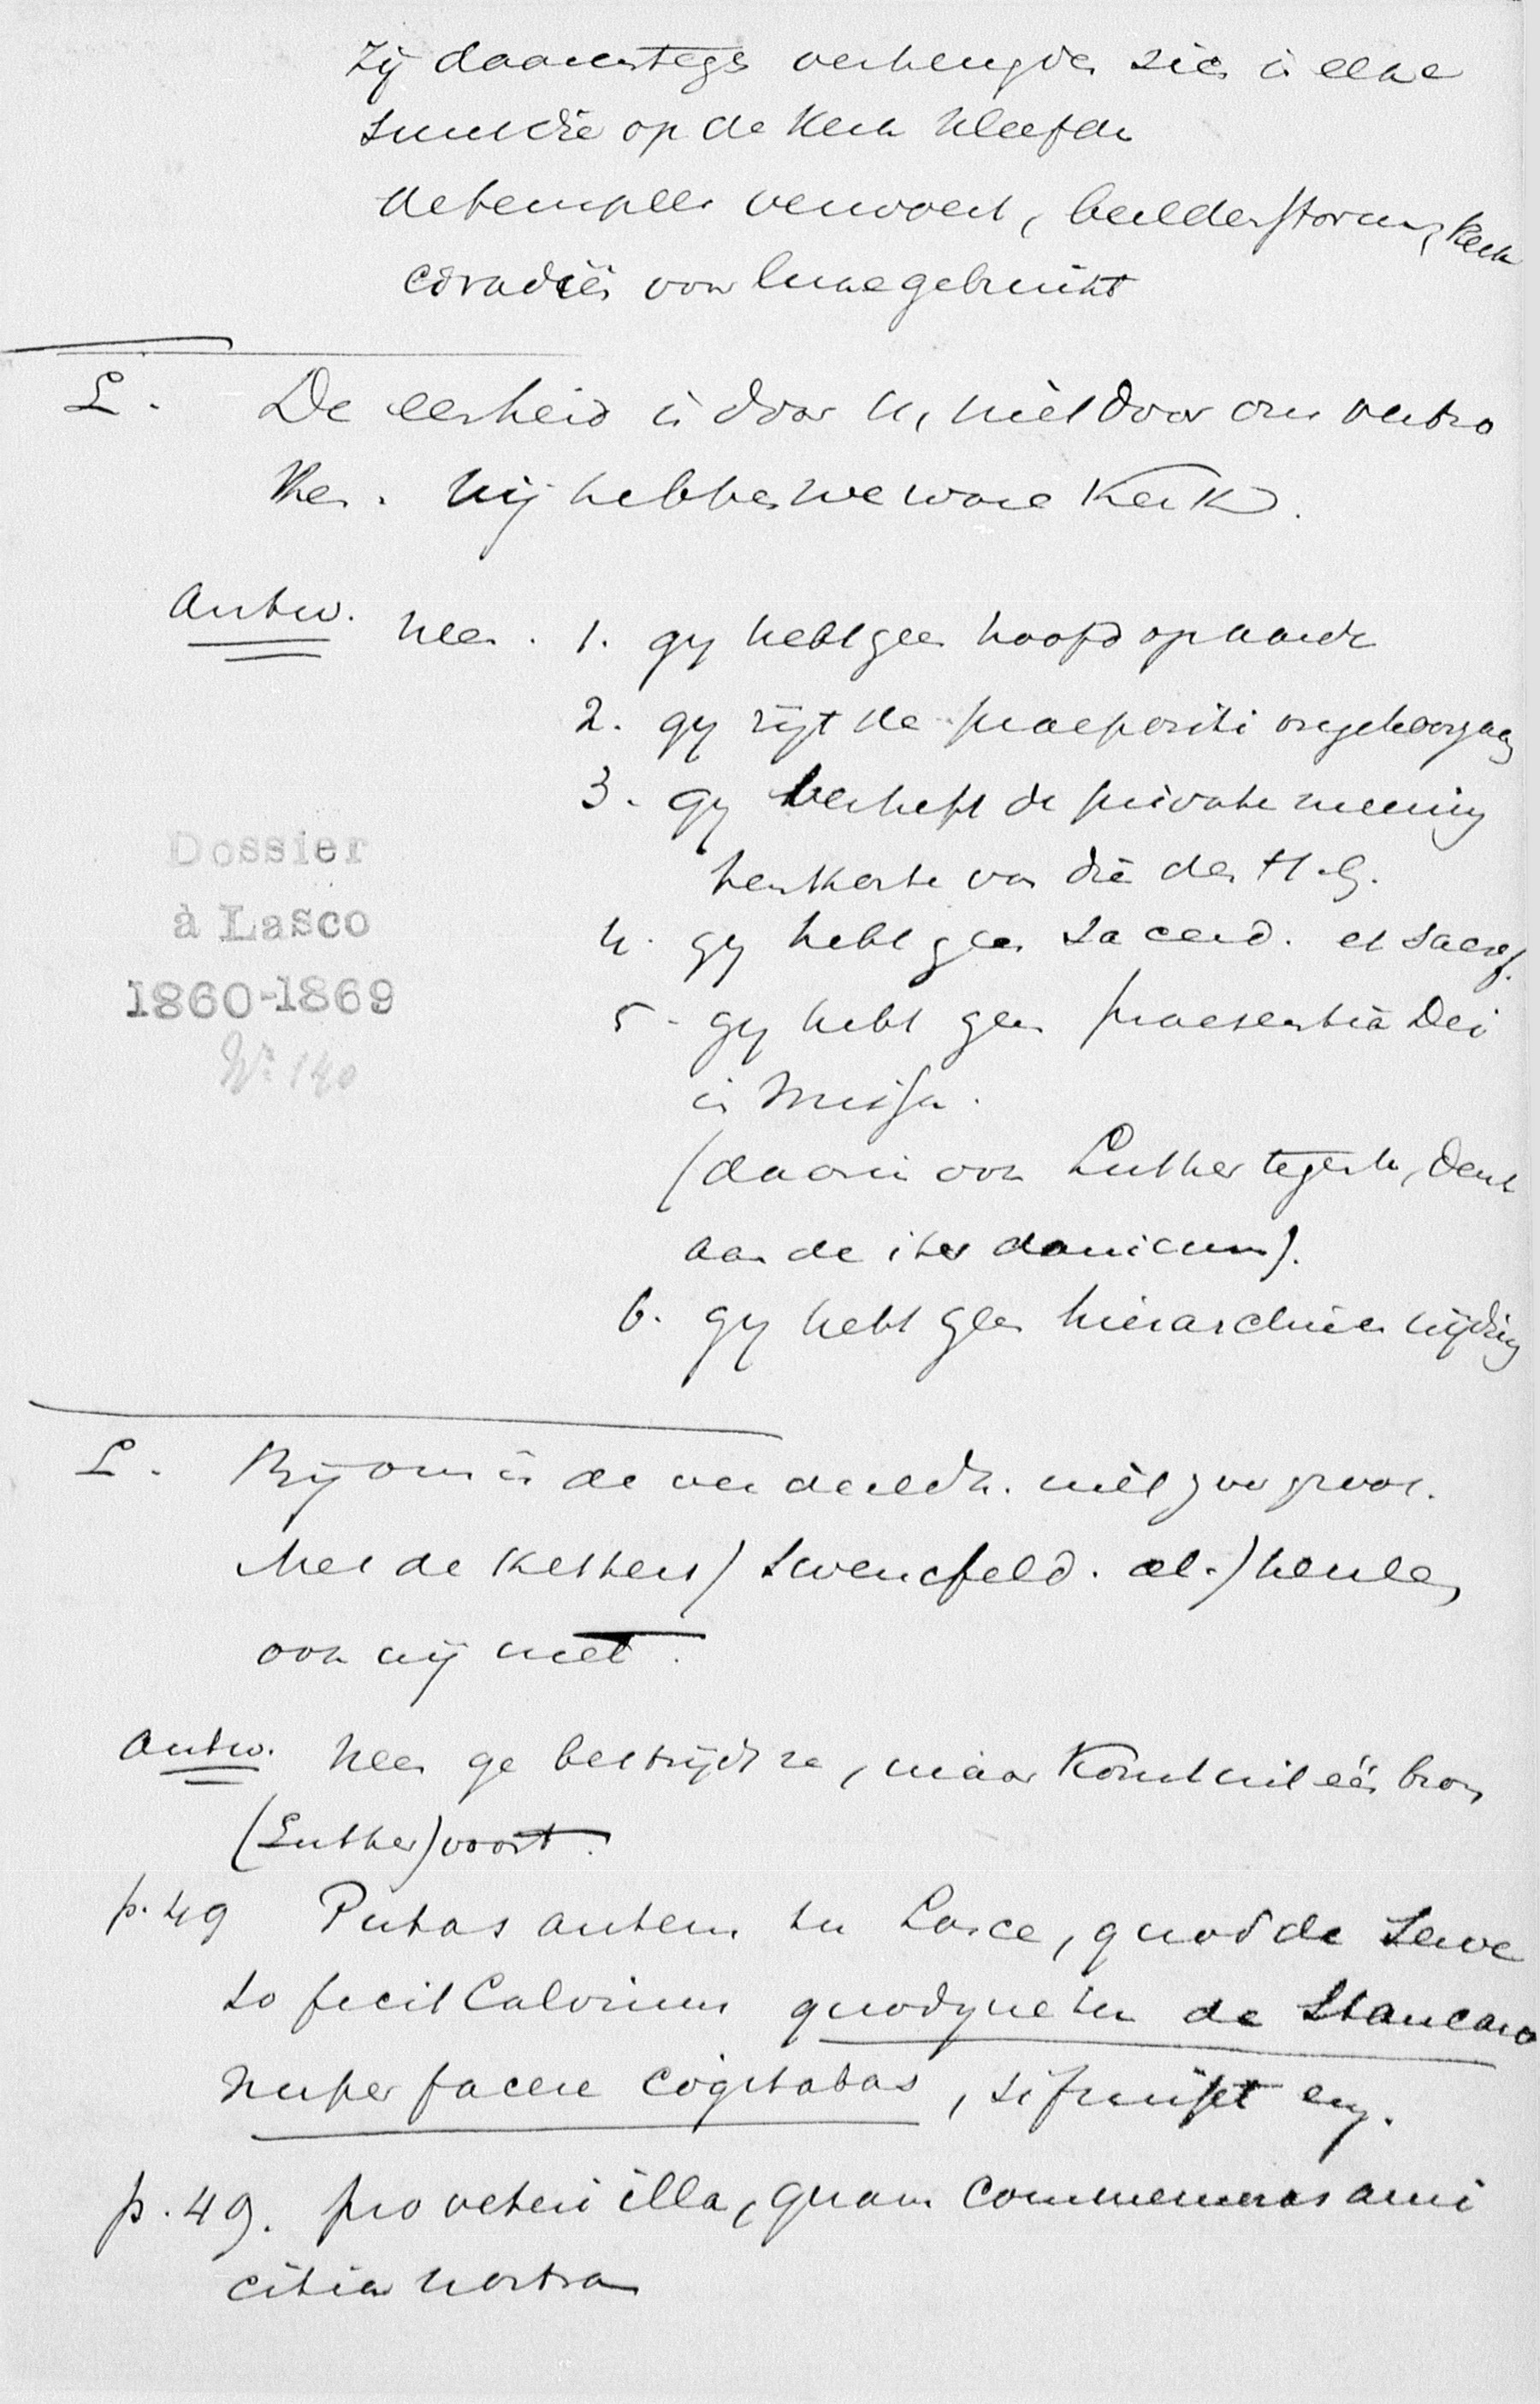 Zij daarentegen verheugden zich in elke
smet die op de Kerk kleefde
de tempels verwoest, beeldenstorm, Kerk
voor luxe gebruikt
L. De eenheid is door U, niet door ons verbro
ken. Wij hebben de ware Kerk.
Antw. Neen. 1. gy hebt geen hoofd op aarde
2. gy zijt de praepositi ongehoorzaam
3. gy verheft de private meening
ten koste van die der H.G.
4. gy hebt geen sacerd. et sacrif.
5. gy hebt geen praesentia Dei
in Missa.
(daarin ook Luther tegen u, denk
aan de iter danicum).
6. gy hebt geen hierarchie wijding
L. Bij ons is de verdeeldh. niet zoo groot.
Met de ketters (Swencfeld. al.) heulen
ook wij niet.
Antw. Neen ge bestrijdt ze, maar komt uit één bron
(Luther) voort.
p. 49 Putas autem tu Lasce, quod de Serve
to fecit Calvinus quodque tu de Stancaro
nuper facere cogitabas, enz.
p. 49. pro veteri illa, quam commemoras ami
citia nostra
Dossier
à Lasco
1860-1869
No 140